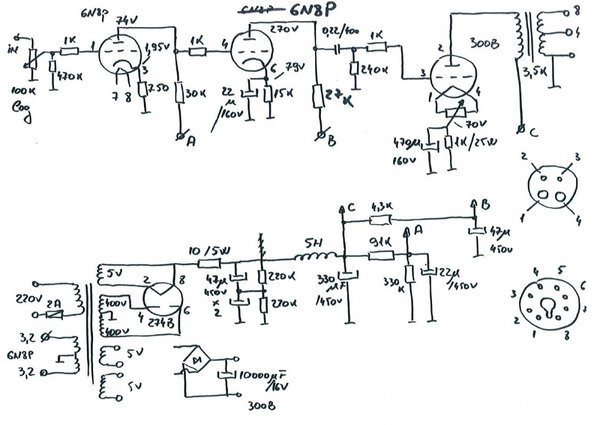 6N8P
74V
6N8P 6N8P
270V
0,22/400
1K
8
4
iN
1K
1
1,95V
3
1K
4
6
79V
2
300B
3
3,5K
470K
100K
Log
7 8
750
30K
22
μ
/160V
15K
27K
240K
1
4
70V
470μ
160V
1K/25W
A
B
C
2
3
1
4
C
4,3K
B
A
5H
91K
47μ
450V
10/5W
5V
2
8
47μ
450V
x
2
220K
220K
330
μF
/450V
330
K
22μ
/450V
220V
2A
400V
400V
4
6
274B
3,2
6N8P
3,2
5V
5V
D1
10000μF
/16V
300B
4
5
3
6
2
7
1
8